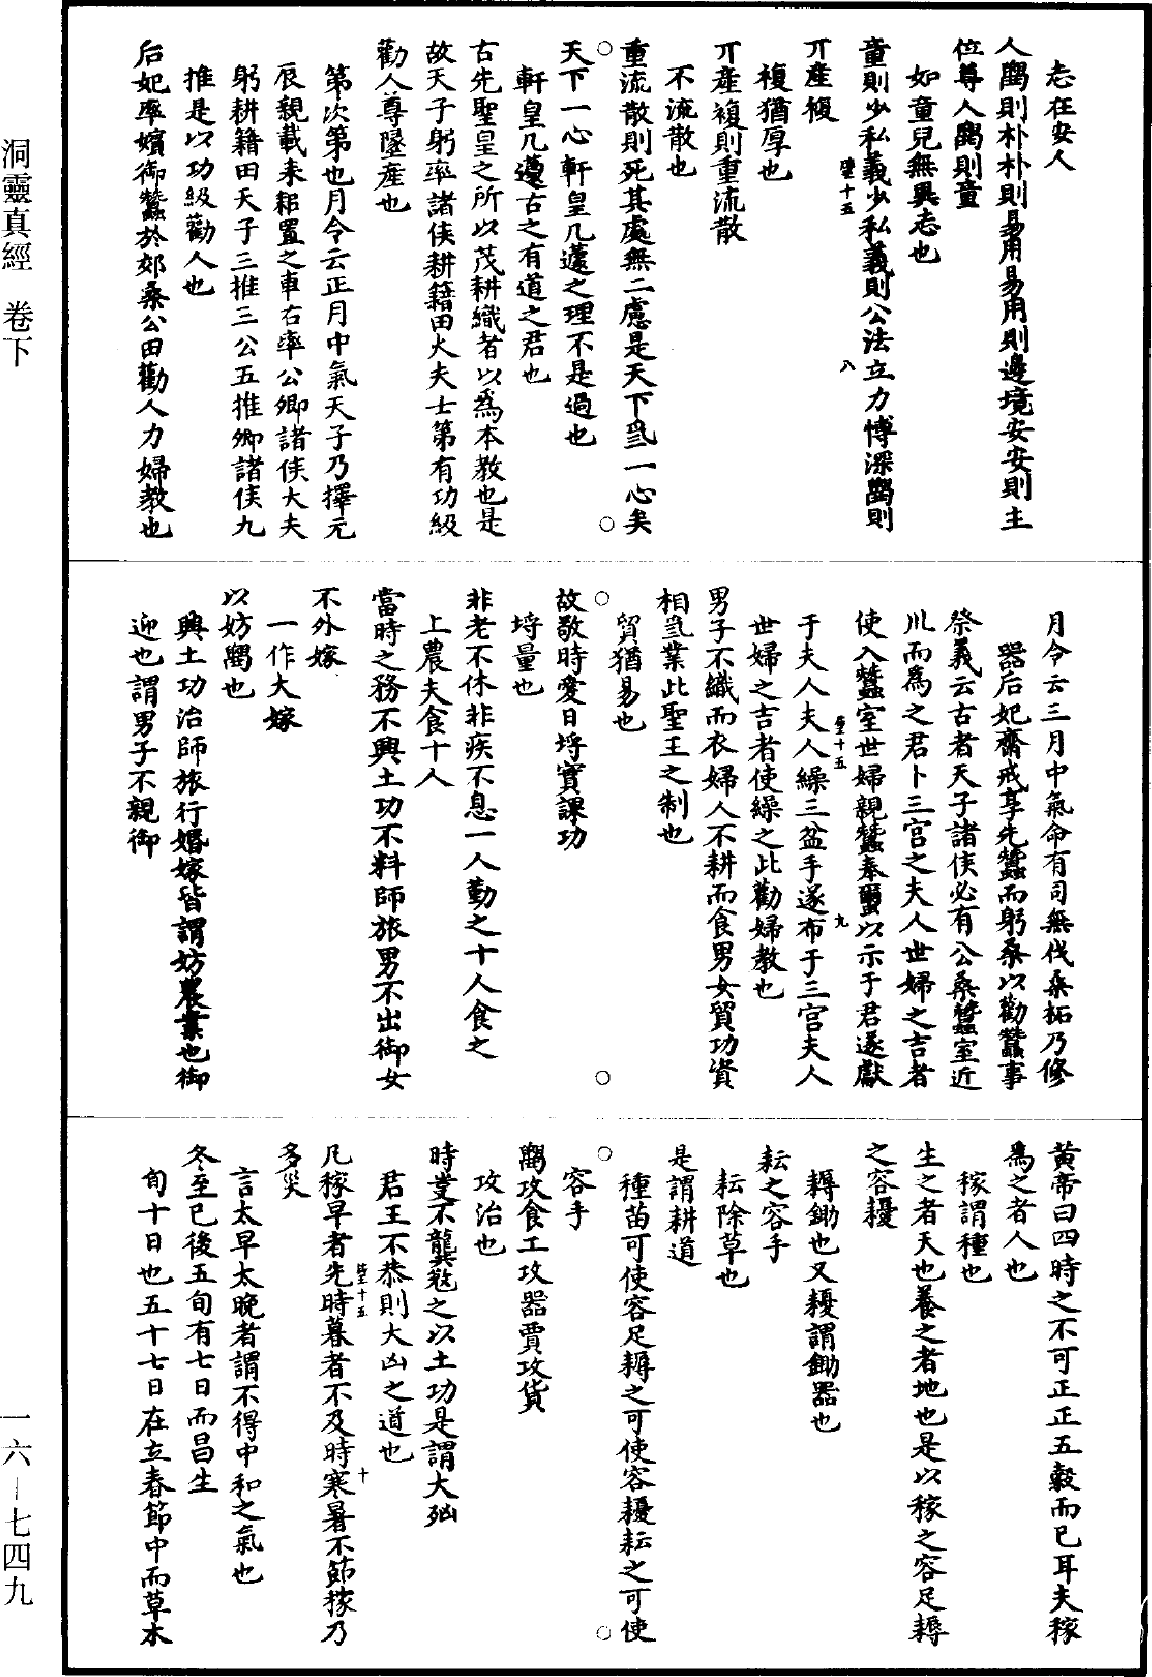 志在安人
人農則朴朴則易用易用則邊境安安則主
位尊人農則童
如童兒無異志也
童則少私義少私義則公法立力博深農則
丌產複
複猶厚也
丌產複則重流散
不流散也
重流散則死其處無二慮是天下爲一心矣
天下一心軒皇几蘧之理不是過也
軒皇几蘧古之有道之君也
古先聖皇之所以茂耕織者以爲本教也是
故天子躬率諸侯耕籍田大夫士第有功級
勸人尊墜產也
第次第也月令云正月中氣天子乃擇元
辰親載耒耜置之車右率公卿諸侯大夫
躬耕籍田天子三推三公五推卿諸侯九
推是以功級勸人也
后妃率嬪御蠶於郊桑公田勸人力婦教也
月令云三月中氣命有司無伐桑柘乃修
器后妃齋戒享先蠶而躬桑以勸蠶事
祭義云古者天子諸侯必有公桑蠶室近
川而爲之君卜三宮之夫人世婦之吉者
使入蠶室世婦親蠶奉蠒以示于君遂獻
于夫人夫人繰三盆手遂布于三宮夫人
世婦之吉者使繰之此勸婦教也
男子不織而衣婦人不耕而食男女貿功資
相爲業此聖王之制也
貿猶易也
故敬時愛日埒實課功
埒量也
非老不休非疾不息一人勤之十人食之
上農夫食十人
當時之務不興土功不料師旅男不出御女
不外嫁
一作大嫁
以妨農也
興土功治師旅行婚嫁皆謂妨農業也御
迎也謂男子不親御
黄帝曰四時之不可正正五穀而已耳夫稼
爲之者人也
稼謂種也
生之者天也養之者地也是以稼之容足耨
之容耰
耨鋤也又耰謂鋤器也
耘之容手
耘除草也
是謂耕道
種苗可使容足耨之可使容耰耘之可使
容手
農攻食工攻器賈攻貨
攻治也
時㕝不龔敓之以土功是謂大凶
君王不恭則大凶之道也
凡稼早者先時暮者不及時寒暑不節稼乃
多災
言太早太晚者謂不得中和之氣也
冬至已後五旬有七日而昌生
旬十日也五十七日在立春節中而草木
洞靈真經 卷下
一六—七四九